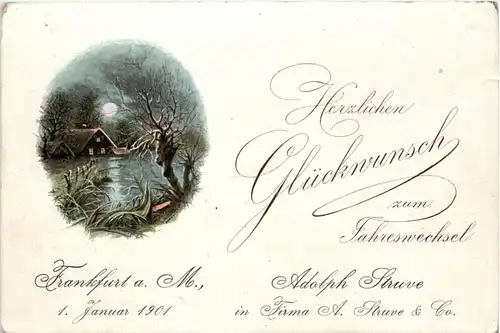 Herzlichen
Glückwunsch
zum
Jahreswechsel
Frankfurt a. M.,
1. Januar 1901
Adolph Struve
in Firma A. Struve & Co.